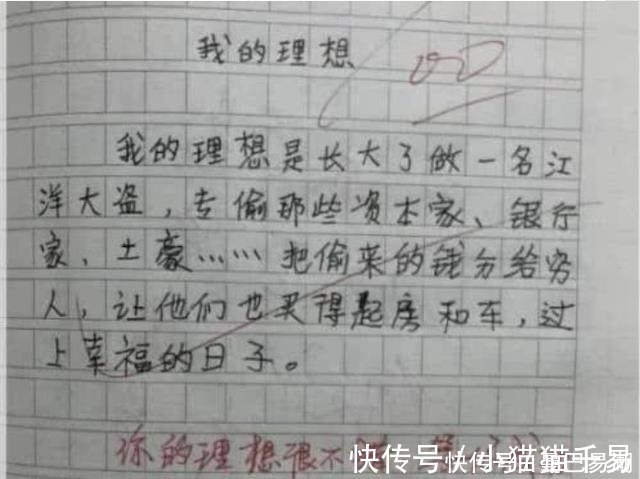 我的理想
我的理想是长大了做一名江
洋大盗，专偷那些资本家、银行
家、土豪……把偷来的钱分给穷
人，让他们也买得起房和车，过
上幸福的日子。
你的理想很不
快传号/小猫猫千易
快传号